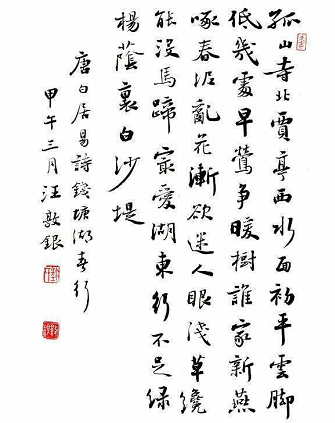 孤山寺北賈亭西水面初平雲脚
低幾處早鶯争暖樹誰家新燕
啄春泥亂花漸欲迷人眼淺草纔
能没馬蹄最愛湖東行不足緑
楊蔭裏白沙堤
唐白居易詩錢塘湖春行
甲午三月汪敦銀